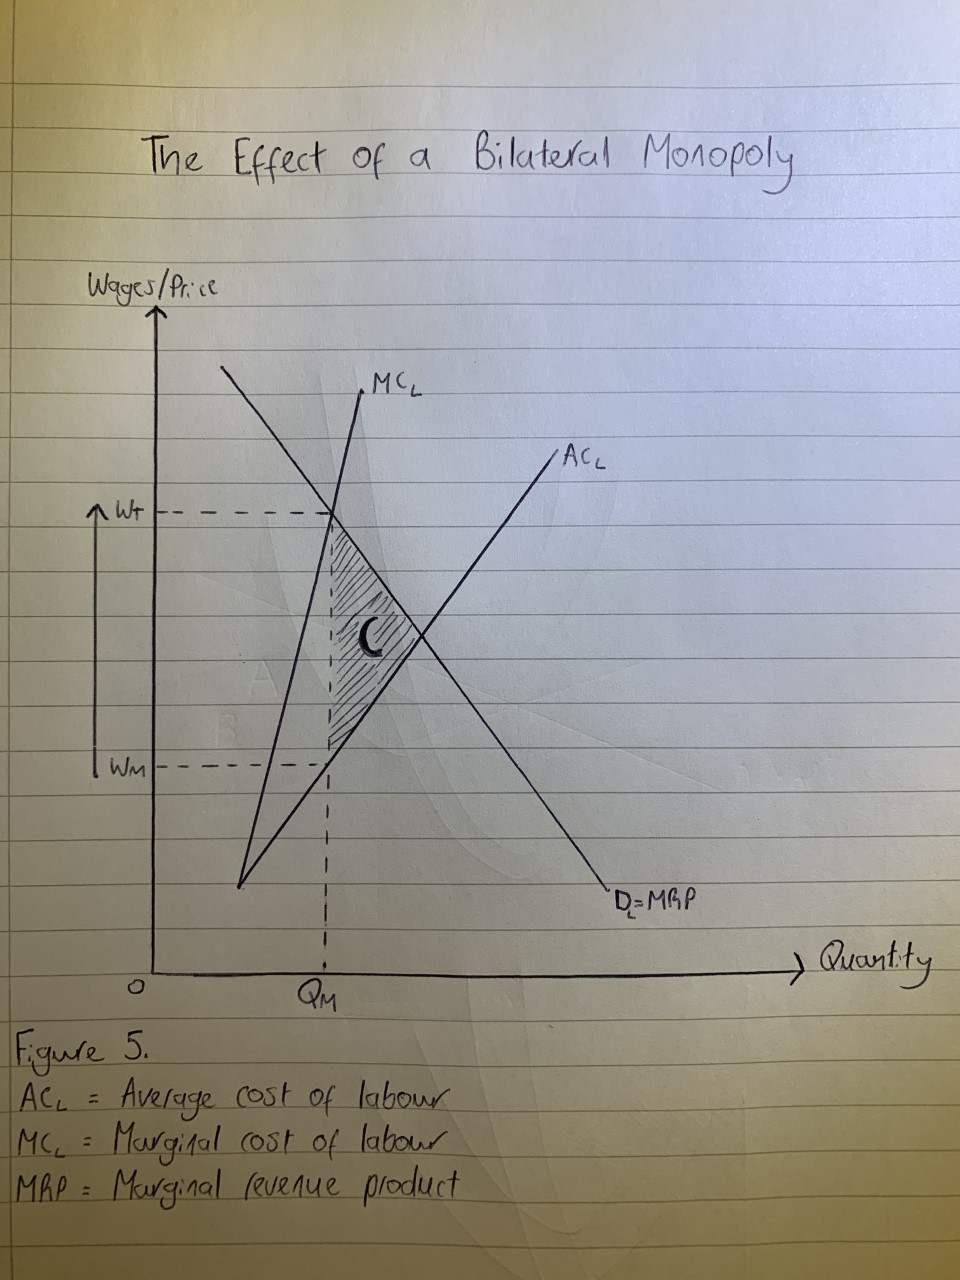 The Effect of a Bilateral Monopoly
Wages/Price
MCL
ACL
WT
C
WM
DL=MRP
Quantity
O
QM
Figure 5.
ACL = Average cost of labour
MCL = Marginal cost of labour
MRP = Marginal revenue product